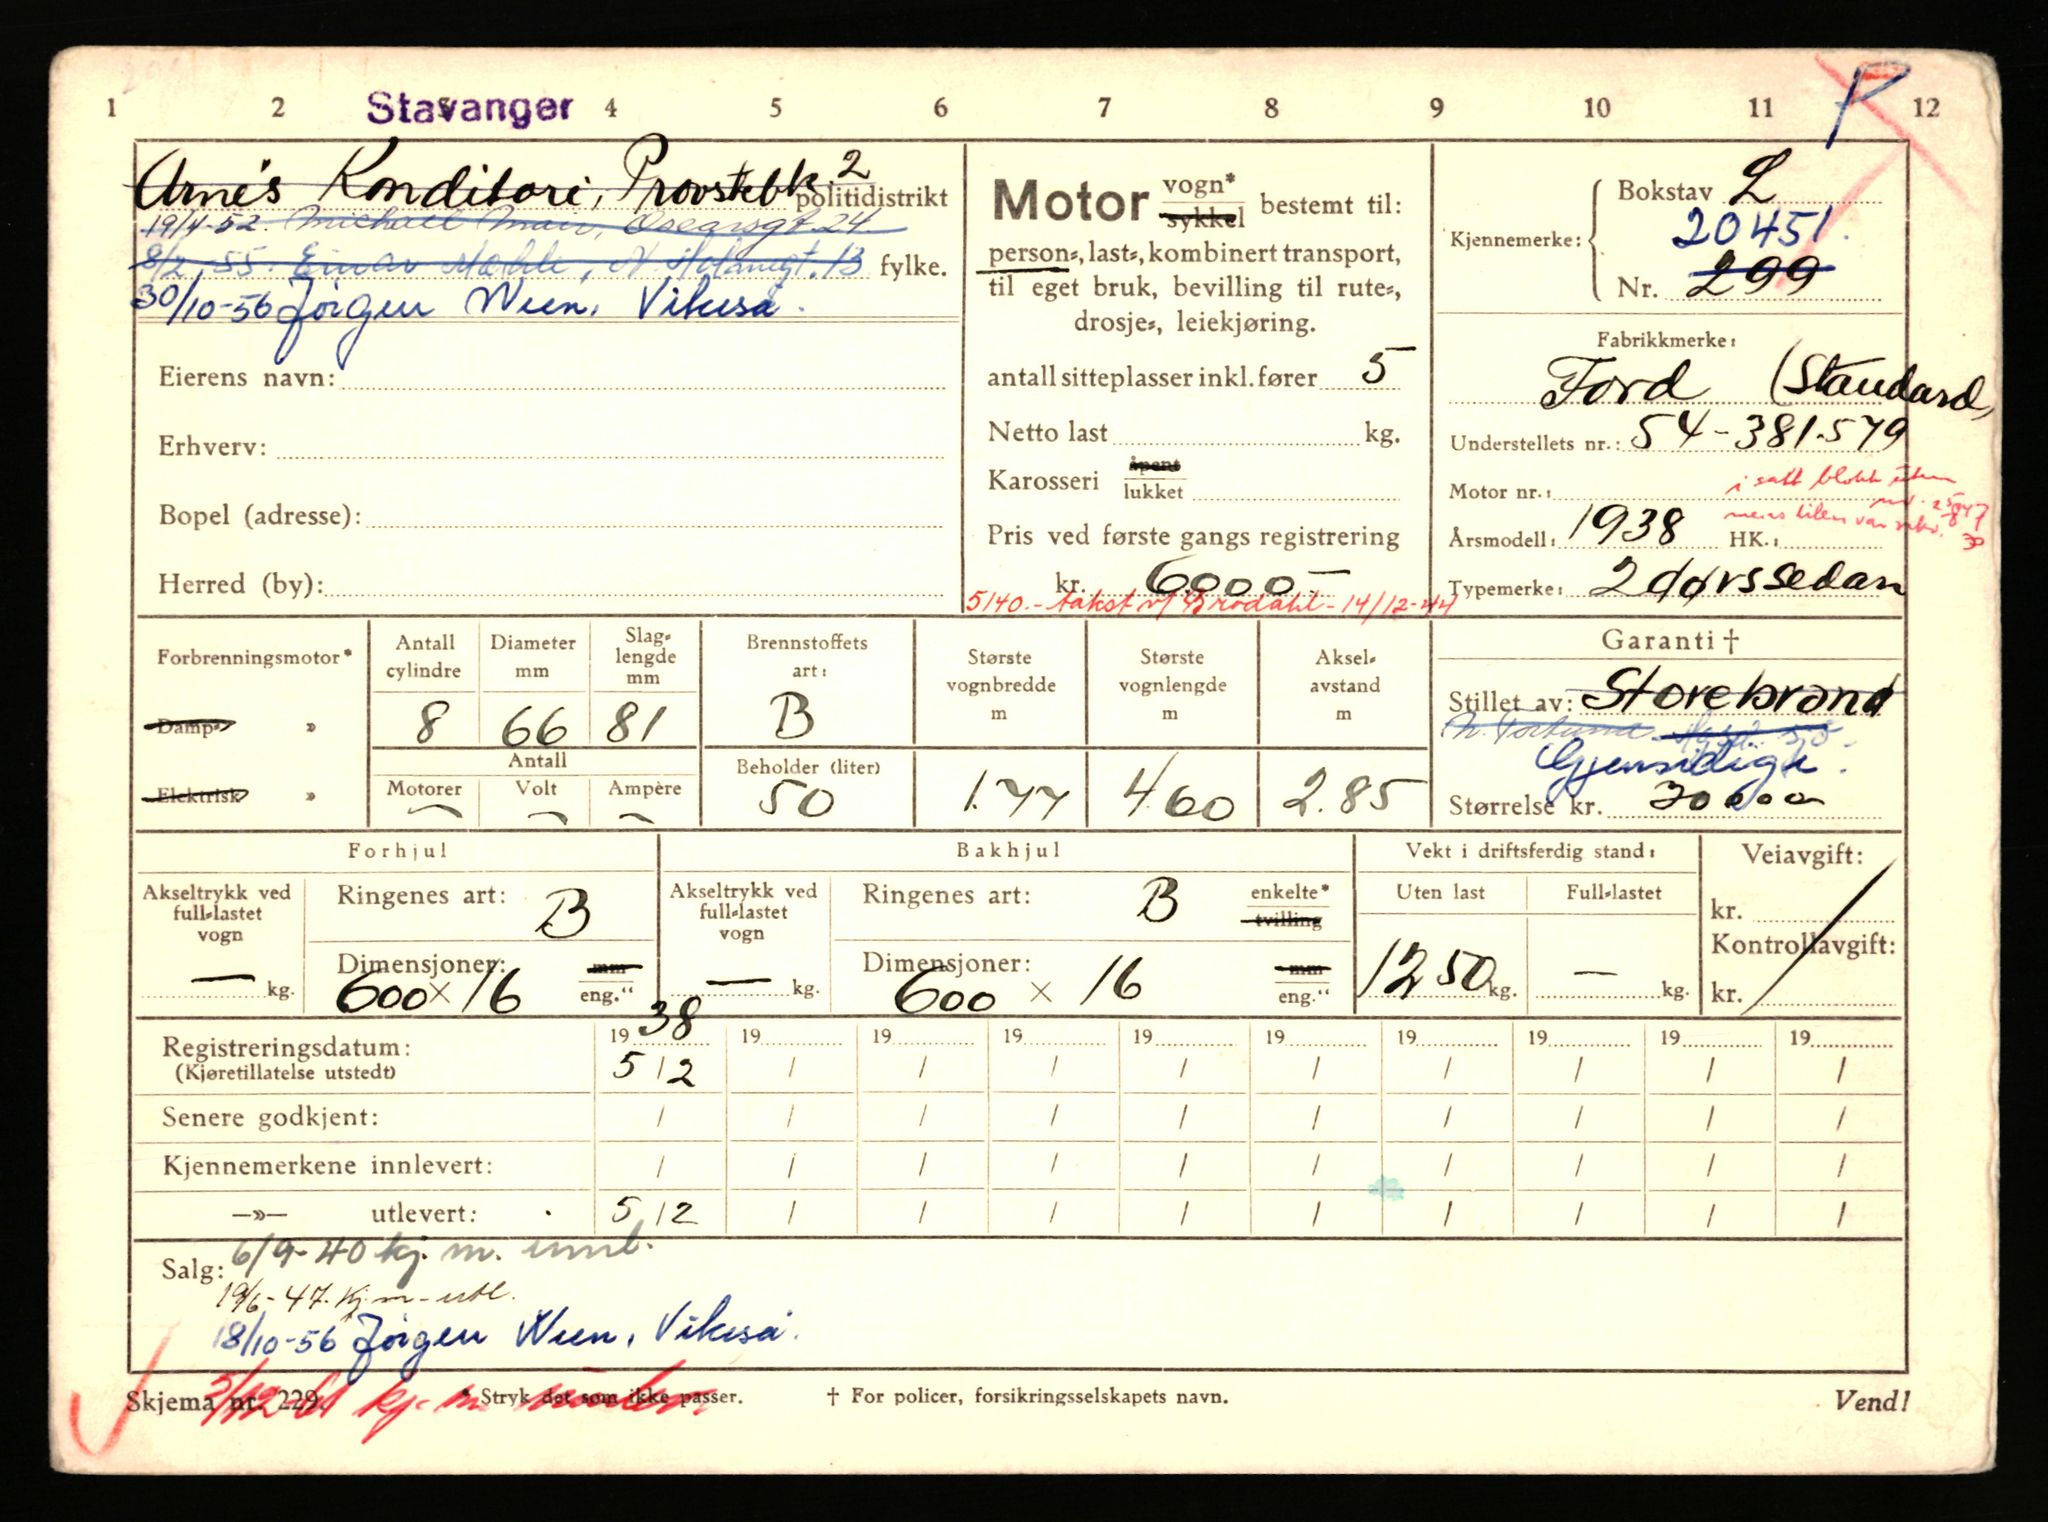 1 2 Stavanger 4 5 6 7 8 9 10 11 12
P
Arne's Konditori, Provstebk. 2 politidistrikt
19/4-52. Michael Oscarsgt. 24
8/2-55. Einar 13 fylke.
30/10-56 Jørgen Wien, Vikeså.
Eierens navn:
Erhverv:
Bopel (adresse):
Herred (by):
Motor vogn* sykkel bestemt til:
person-, last-, kombinert transport,
til eget bruk, bevilling til rute-,
drosje-, leiekjøring.
antall sitteplasser inkl. fører 5
Netto last kg.
Karosseri åpent lukket
Pris ved første gangs registrering
kr. 6000.—
5140.- takst v/ Brodahl - 14/12-44
Bokstav L
20451.
Kjennemerke:
Nr. 299
Fabrikkmerke:
Ford (Standard)
Understellets nr.: 54-381.579
Motor nr.: i satt blokk uten
Årsmodell: 1938 HK.:
Typemerke: 2dørssedan
Forbrenningsmotor* Antall cylindre Diameter mm Slag-lengde mm Brennstoffets art: Største vognbredde m Største vognlengde m Aksel-avstand m
Damp- » 8 66 81 B
Antall
Elektrisk » Motorer Volt Ampère Beholder (liter) 50 1.77 4.60 2.85
Garanti †
Stillet av: Storebrand
Gjensidige.
Størrelse kr. 30000
Forhjul Bakhjul Vekt i driftsferdig stand: Veiavgift:
Akseltrykk ved full-lastet vogn — kg.
Ringenes art: B
Dimensjoner: mm
600 x 16 eng."
Akseltrykk ved full-lastet vogn — kg.
Ringenes art: B enkelte* tvilling
Dimensjoner: mm
600 x 16 eng."
Uten last Full-lastet
1250 kg. — kg.
kr.
Kontrollavgift:
kr.
Registreringsdatum: 1938 19 19 19 19 19 19 19 19 19
(Kjøretillatelse utstedt) 5/12 / / / / / / / / /
Senere godkjent: / / / / / / / / / /
Kjennemerkene innlevert: / / / / / / / / / /
—»— utlevert: 5/12 / / / / / / / / /
Salg: 6/9-40 kj. m. innl.
19/6-47. Kj.m-utl.
18/10-56 Jørgen Wien, Vikeså.
Skjema nr. 229. * Stryk det som ikke passer. † For policer, forsikringsselskapets navn. Vend!